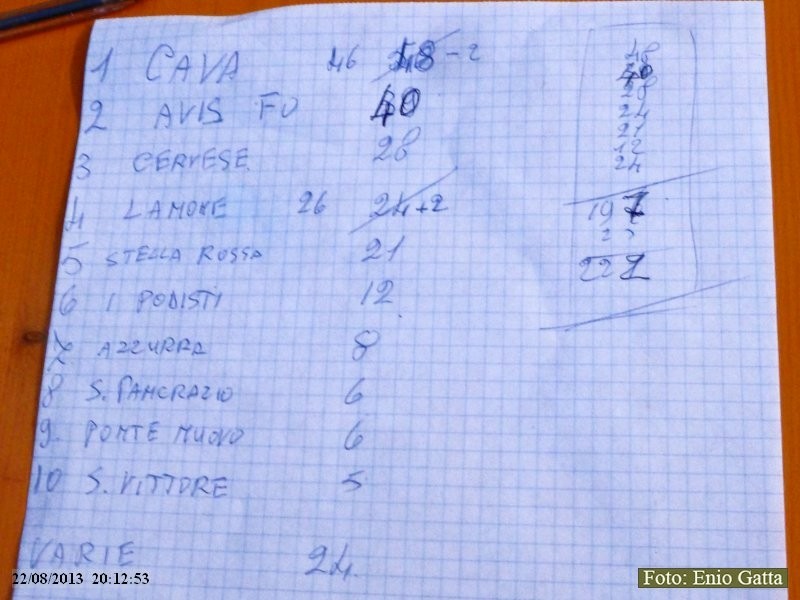 1 CAVA 46 48 - 2
2 AVIS FO 40
3 CERVESE 28
4 LAMONE 26 24 + 2
5 STELLA ROSSA 21
6 I PODISTI 12
7 AZZURRA 8
8 S. PANCRAZIO 6
9. PONTE NUOVO 6
10 S. VITTORE 5
VARIE 24
48
40
28
24
21
12
24
197
222
22/08/2013 20:12:53
Foto: Enio Gatta